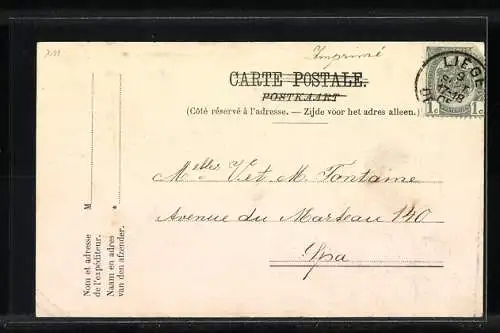 Imprimé
CARTE POSTALE.
POSTKAART
(Côté réservé à l'adresse. — Zijde voor het adres alleen.)
Melles V. et M. Fontaine
Avenue du Marteau 140
Spa
M
Nom et adresse
de l'expéditeur.
Naam en adres
van den afzender.
LIÈGE
9
1c
1c